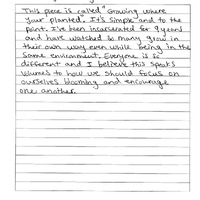 This piece is called "Growing where
Your planted". It's simple and to the
point. I've been incarcerated for 9 years
and have watched so many grow in
their own way even while being in the
same environment. Everyone is is
different and I believe this speaks
Volumes to how we should focus on
ourselves blooming and encourage
one another.